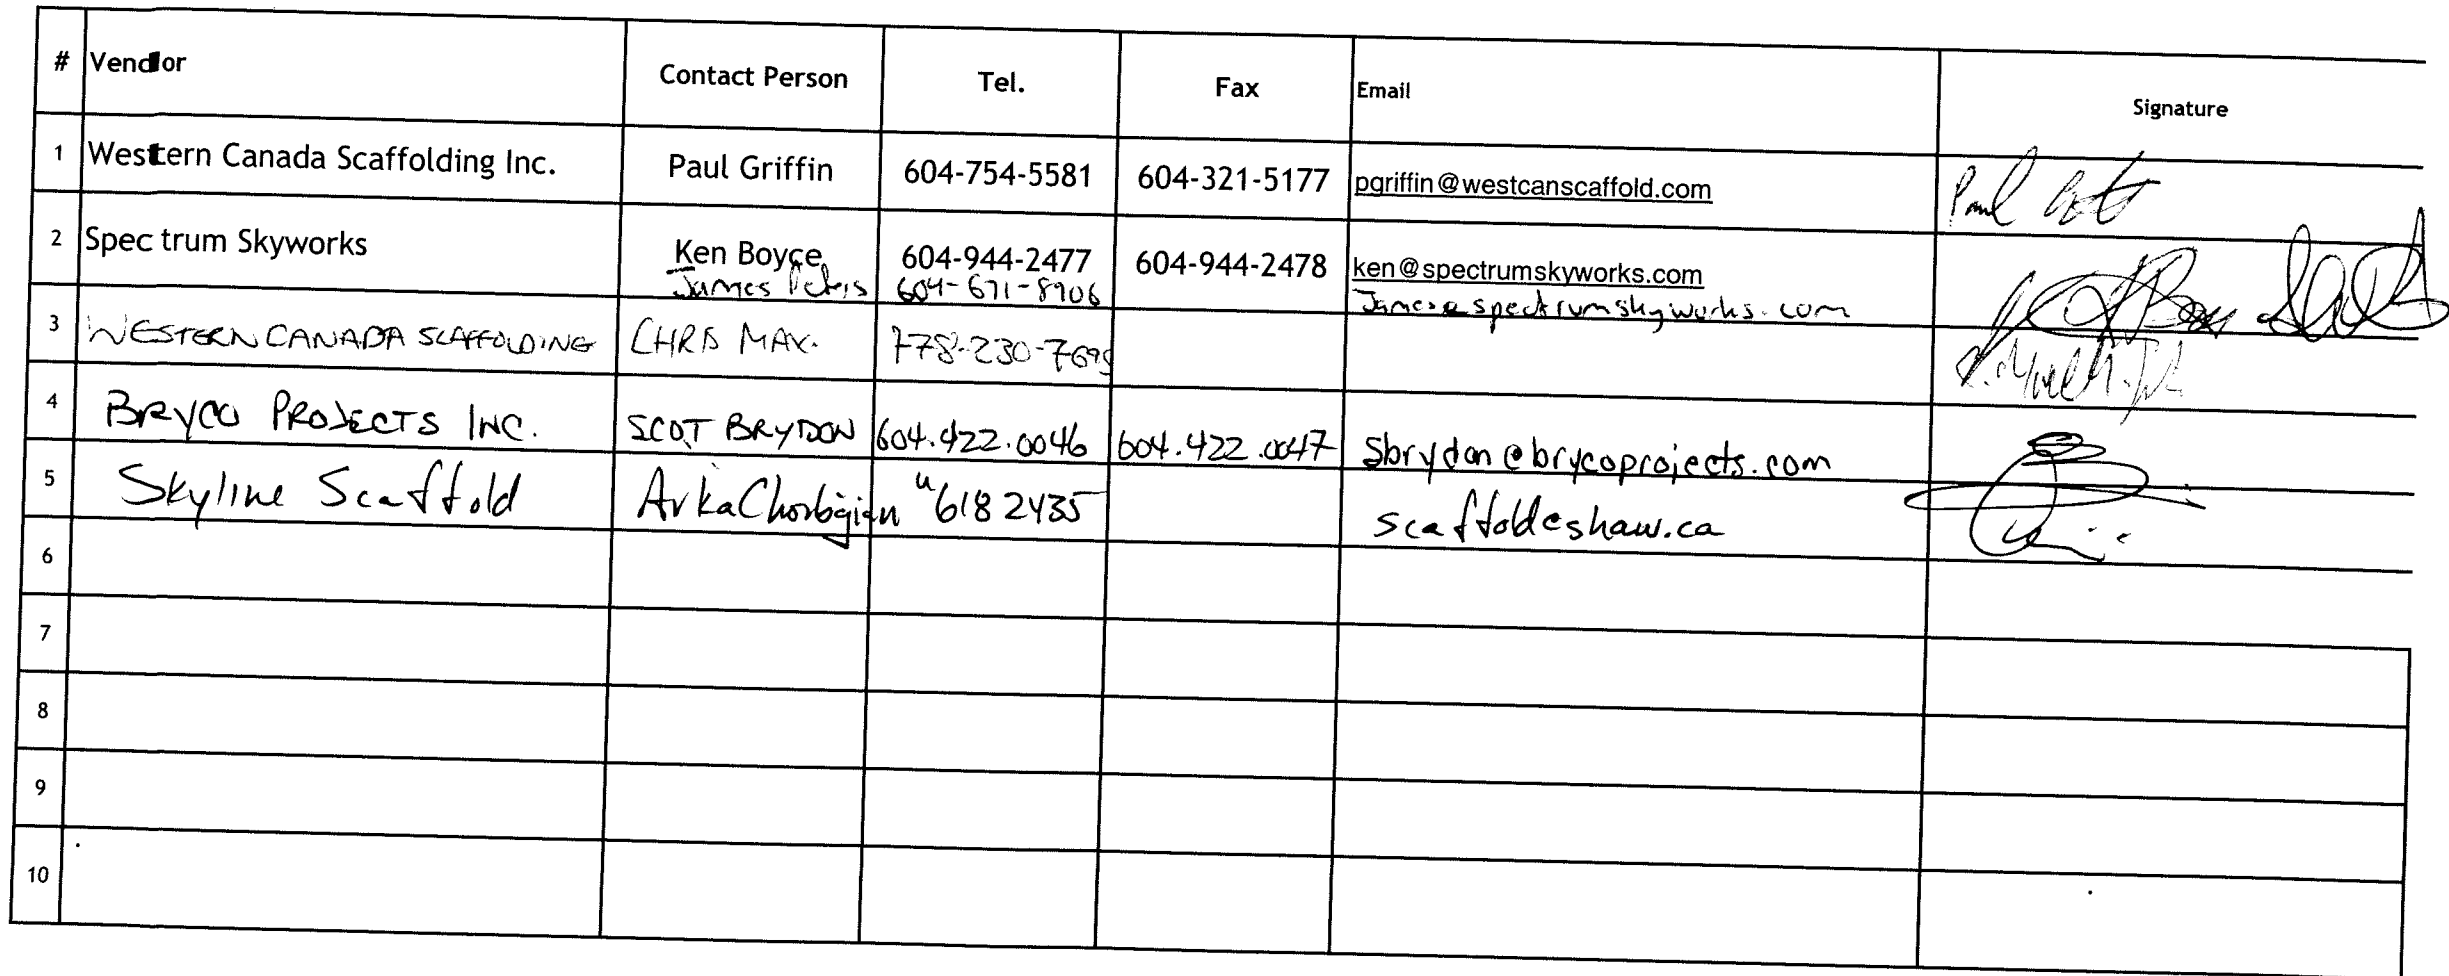 # Vendor Contact Person Tel. Fax Email Signature
1 Western Canada Scaffolding Inc. Paul Griffin 604-754-5581 604-321-5177 pgriffin@westcanscaffold.com Paul
2 Spectrum Skyworks Ken Boyce 604-944-2477 604-944-2478 ken@spectrumskyworks.com
James Peters 604-671-8906 James@spectrumskyworks.com
3 WESTERN CANADA SCAFFOLDING CHRIS MAY. 778-230-7695
4 BRYCO PROJECTS INC. SCOT BRYDON 604.422.0046 604.422.0047 sbrydon@brycoprojects.com
5 Skyline Scaffold Arka Chorbajian " 618 2435 scaffold@shaw.ca
6
7
8
9
10